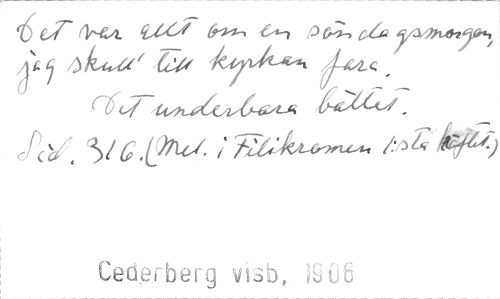 Det var allt om en söndagsmorgon,
jag skull' till kyrkan fara.
Det underbara bältet.
Sid. 316. (Mel. i Filikromen 1:sta häftet.)
Cederberg visb, 1906